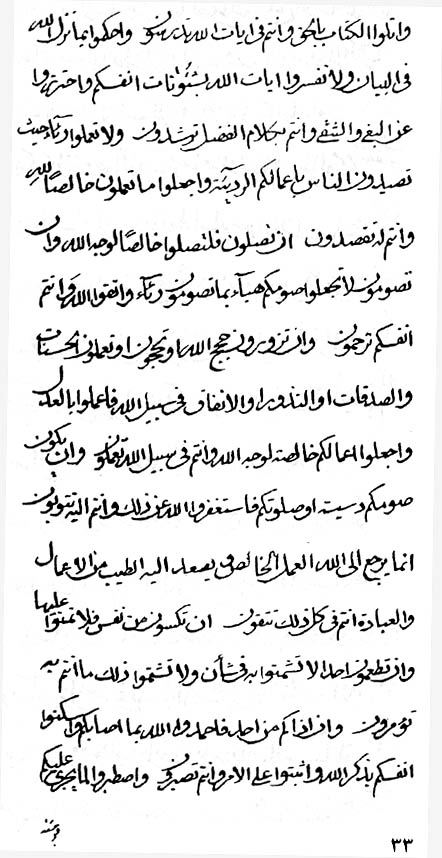 واتلوا الكتاب بالحق وانتم فى ايات الله تدرسون واحكموا بما نزل الله
فى البيان ولا تفسروا ايات الله بشئونات انفسكم واحترزوا
عن البغى والشقى وانتم بكلام الفضل ترشدون ولا تعملوا رئآء حيث
تصيدون الناس باعمالكم الردیئة واجعلوا ما تعملون خالصًا لله
وانتم له تقصدون ان تصلون فلتصلوا خالصًا لوجه الله وان
تصومون لا تجعلوا صومكم هبآء بما تصومون رئآء واتقوا الله وانتم
انفسكم ترحمون وان تزورون حجج الله او تحجون او تعملون الحسنات
والصدقات او النذور او الانفاق فى سبيل الله فاعملوا بالعدل
واجعلوا اعمالكم خالصته لوجه الله وانتم فى سبيل الله تعملون وان يكون
صومكم دسيته او صلوتكم فاستغفروا الله عن ذلك وانتم اليه تتوبون
انما يرجع الى الله العمل الخالص يصعد اليه الطيب من الاعمال
والعبادة انتم فى كل ذلك تتقون ان تكسون من نفس فلا تمنوا عليها
وان تطعمون احد الا تشمتوا به فى شأن ولا تشتموا ذلك ما انتم به
تؤمرون وان اذاكم من احد فاحمدوا الله بما اصابكم واسكنوا
انفسكم بذكر الله واثبتوا على الامر وانتم تصبرون واصطبروا لما يجرى عليكم
٣٣